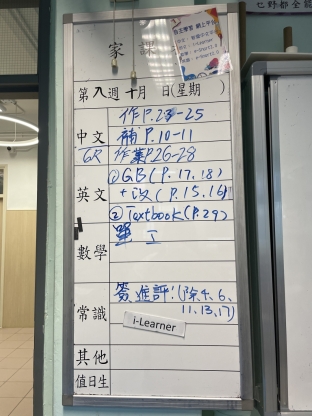 家課
第八週十月 日(星期 )
作P.23-25
中文 補 P.10-11
GR 作業P.26-28
①GB(P.17,18)
英文 +改(P.15,16)
②Textbook(P.29)
數學
常識 簽進評!(除4、6、
11、13、17)
i-Learner
其他
值日生